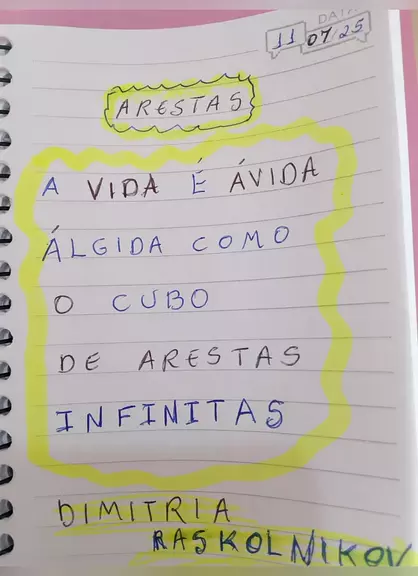 DATA
11 07 25
ARESTAS
A VIDA É ÁVIDA
ÁLGIDA COMO
O CUBO
DE ARESTAS
INFINITAS
DIMITRIA
RASKOLNIKOV